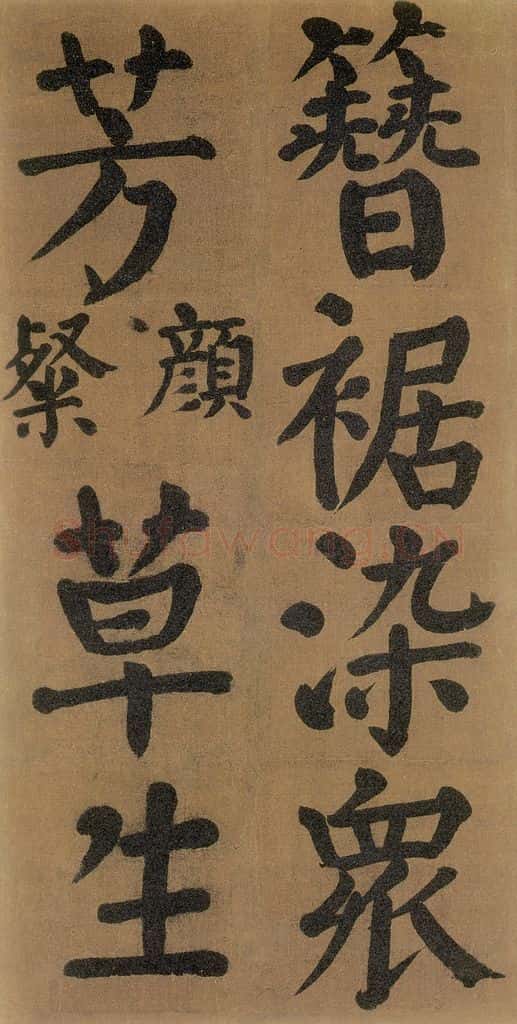 簪裾染眾
芳
顏
粲
草生
Shufawang.CN